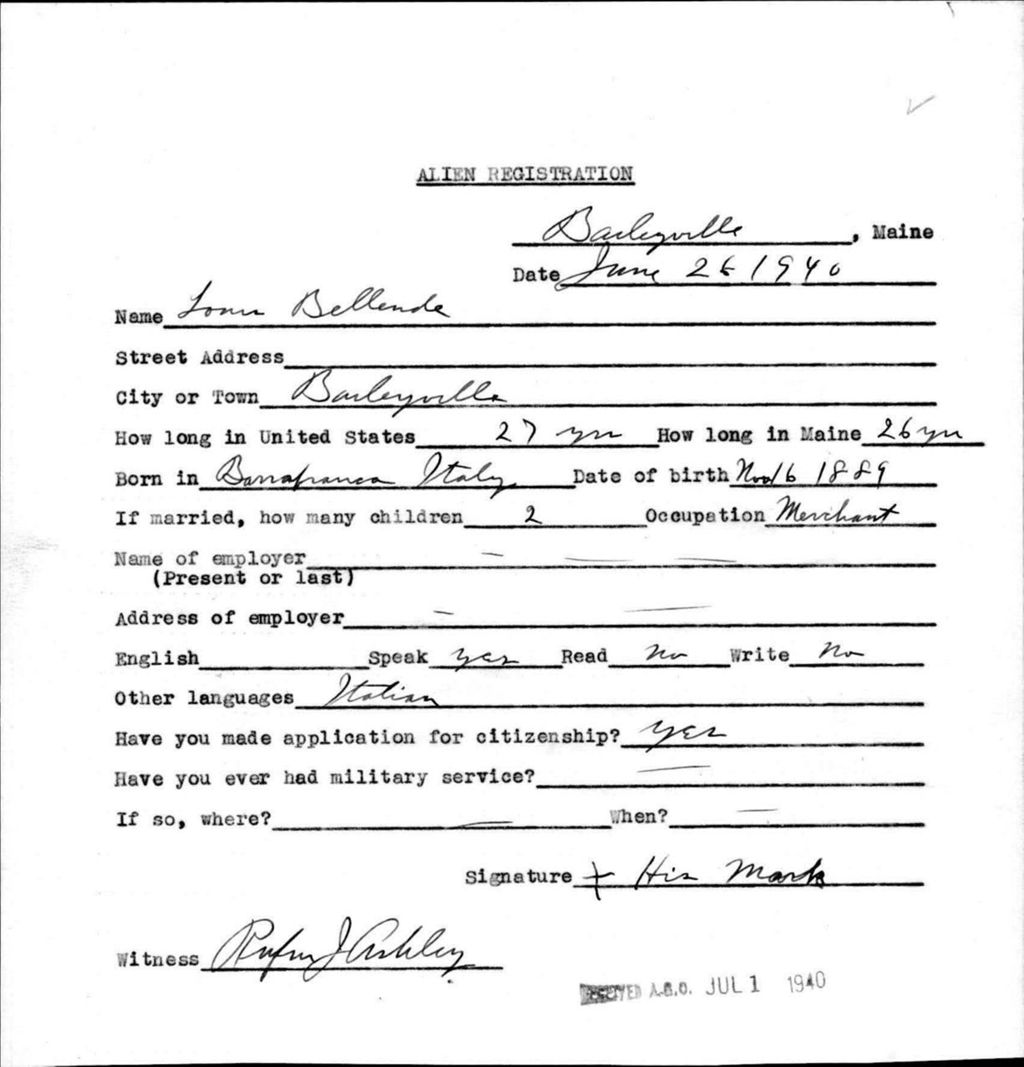 ALIEN REGISTRATION
Baileyville, Maine
Date June 26 1940
Name Louis Bellende
Street Address
City or Town Baileyville
How long in United States 27 yrs How long in Maine 26 yrs
Born in Barrafranca Italy Date of birth Nov 16 1889
If married, how many children 2 Occupation Merchant
Name of employer — —
(Present or last)
Address of employer — —
English Speak yes Read No Write No
Other languages Italian
Have you made application for citizenship? yes
Have you ever had military service? —
If so, where? — When? —
Signature + His Mark
Witness Rufus J Ashley
RECEIVED A.G.O. JUL 1 1940